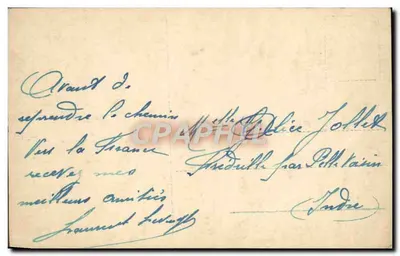 Avant de
reprendre le chemin
Vers la France
recevez mes
meilleurs amitiés
Laurent
Melle Alice Jollet
par Pellevoisin
Indre
CPARAMA